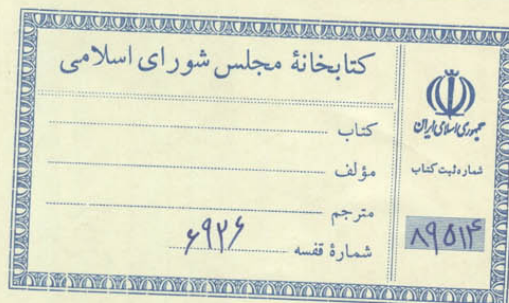 کتابخانهٔ مجلس شورای اسلامی
کتاب
مؤلف
مترجم
شمارهٔ قفسه ۶۹۲۶
جمهوری اسلامی ایران
شماره ثبت کتاب
۸۹۵۱۴